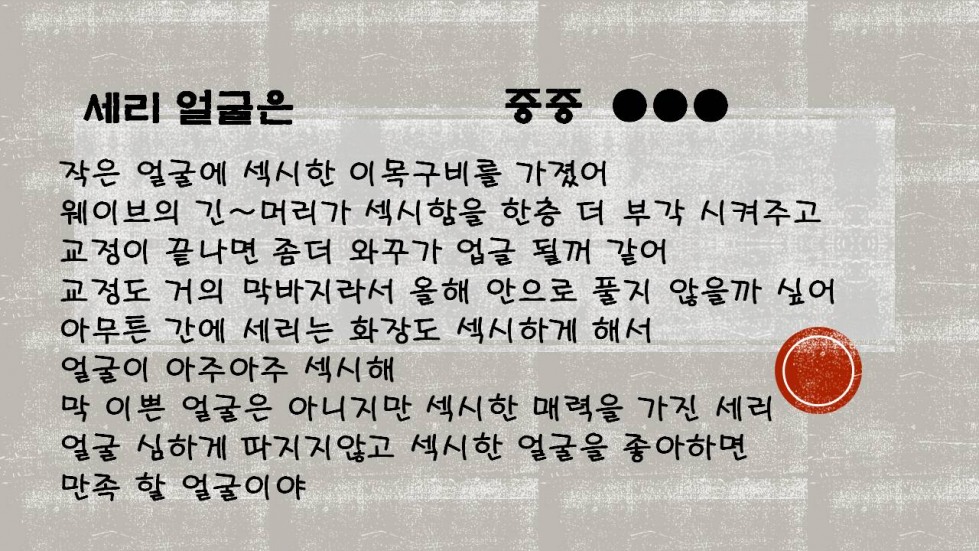 세리 얼굴은 중중 ●●●
작은 얼굴에 섹시한 이목구비를 가졌어
웨이브의 긴~머리가 섹시함을 한층 더 부각 시켜주고
교정이 끝나면 좀더 와꾸가 업글 될꺼 같어
교정도 거의 막바지라서 올해 안으로 풀지 않을까 싶어
아무튼 간에 세리는 화장도 섹시하게 해서
얼굴이 아주아주 섹시해
막 이쁜 얼굴은 아니지만 섹시한 매력을 가진 세리
얼굴 심하게 따지지않고 섹시한 얼굴을 좋아하면
만족 할 얼굴이야